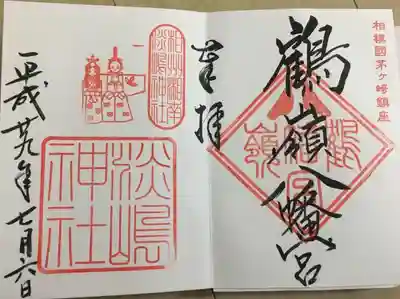 相模國茅ヶ崎鎮座
鶴嶺八幡宮
奉拝
相州湘南
淡嶋神社
淡嶋
神社
平成廿九年七月六日